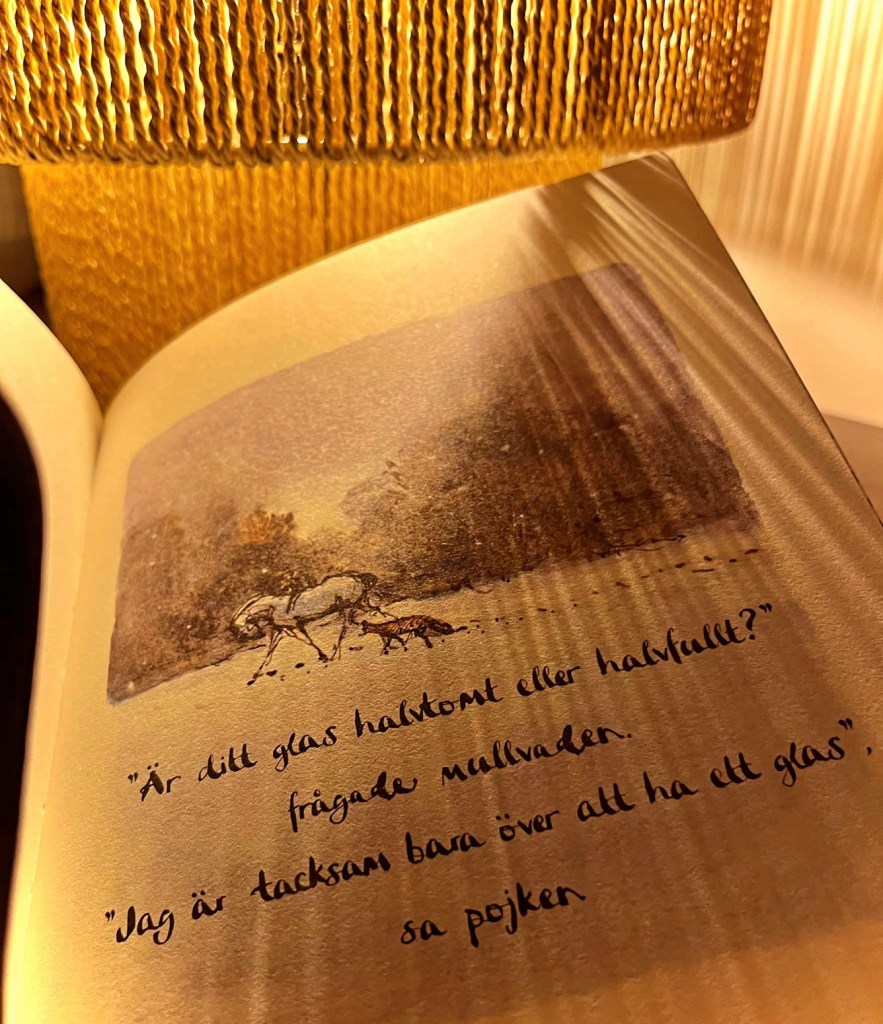 "Är ditt glas halvtomt eller halvfullt?"
frågade mullvaden.
"Jag är tacksam bara över att ha ett glas",
sa pojken